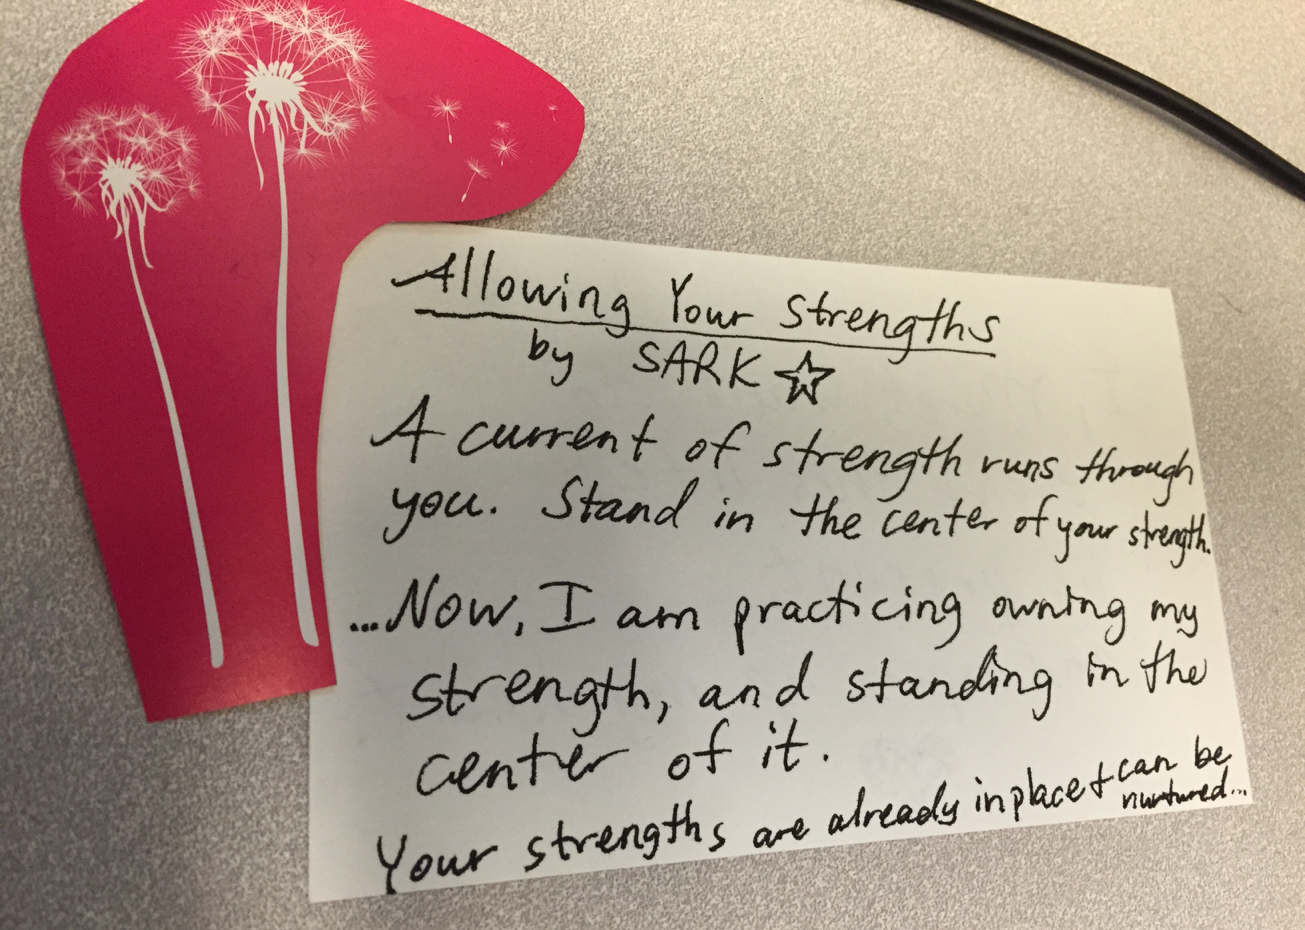 Allowing Your Strengths
by SARK
A current of strength runs through
you. Stand in the center of your strength.
...Now, I am practicing owning my
strength, and standing in the
center of it.
Your strengths are already in place + can be
nurtured...